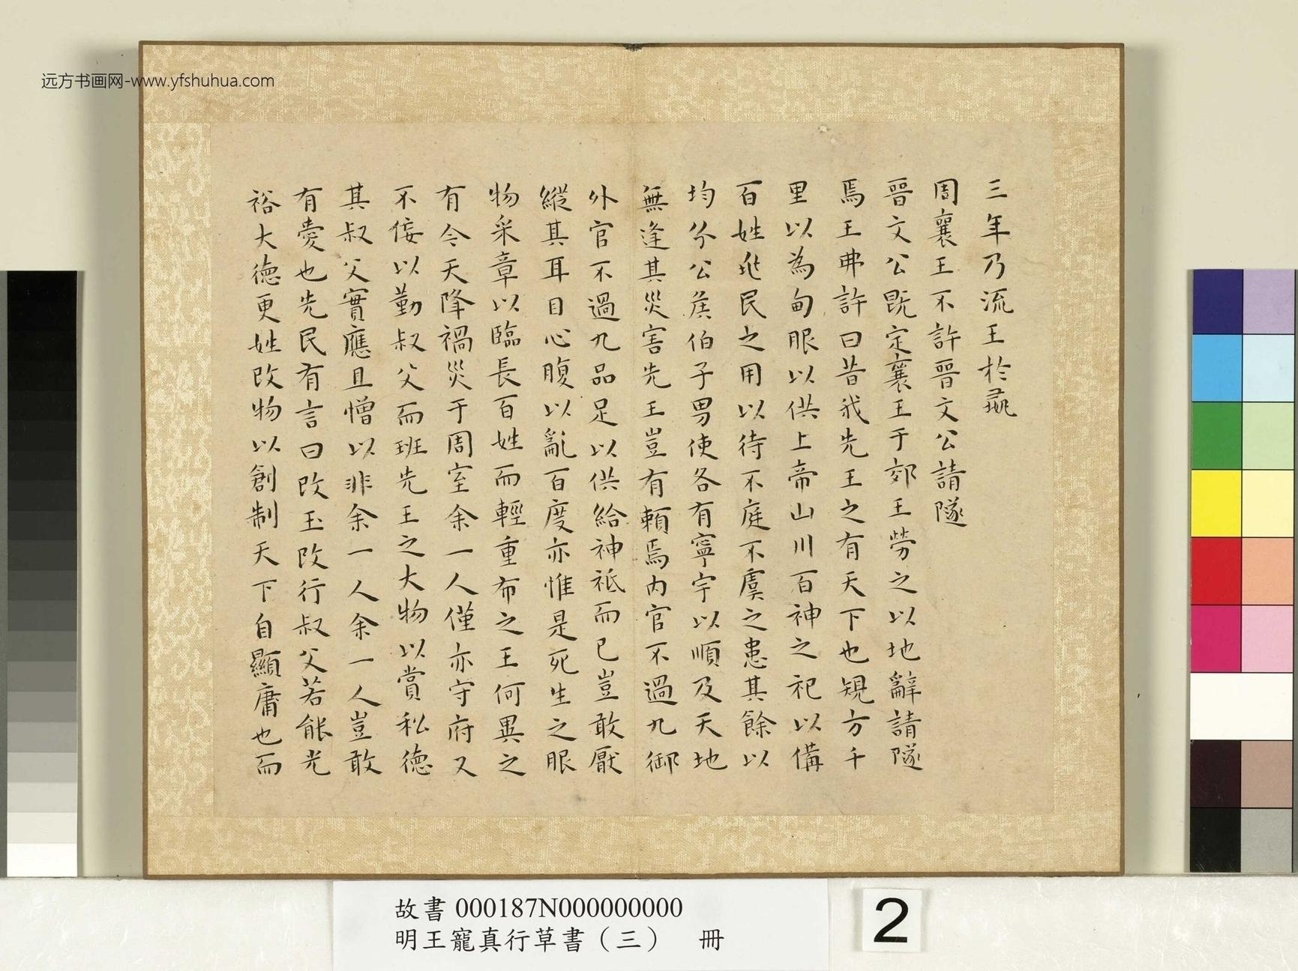 远方书画网-www.yfshuhua.com
三年乃流王於彘
周襄王不許晉文公請隧
晉文公既定襄王于郊王勞之以地辭請隧
焉王弗許曰昔我先王之有天下也規方千
里以為甸服以供上帝山川百神之祀以備
百姓兆民之用以待不庭不虞之患其餘以
均分公矦伯子男使各有寧宇以順及天地
無逢其災害先王豈有賴焉內官不過九御
外官不過九品足以供給神祗而已豈敢厭
縱其耳目心腹以亂百度亦惟是死生之服
物采章以臨長百姓而輕重布之王何異之
有今天降禍災于周室余一人僅亦守府又
不佞以勤叔父而班先王之大物以賞私德
其叔父實應且憎以非余一人余一人豈敢
有愛也先民有言曰改玉改行叔父若能光
裕大德更姓改物以創制天下自顯庸也而
故書 000187N000000000
明王寵真行草書（三） 冊
2